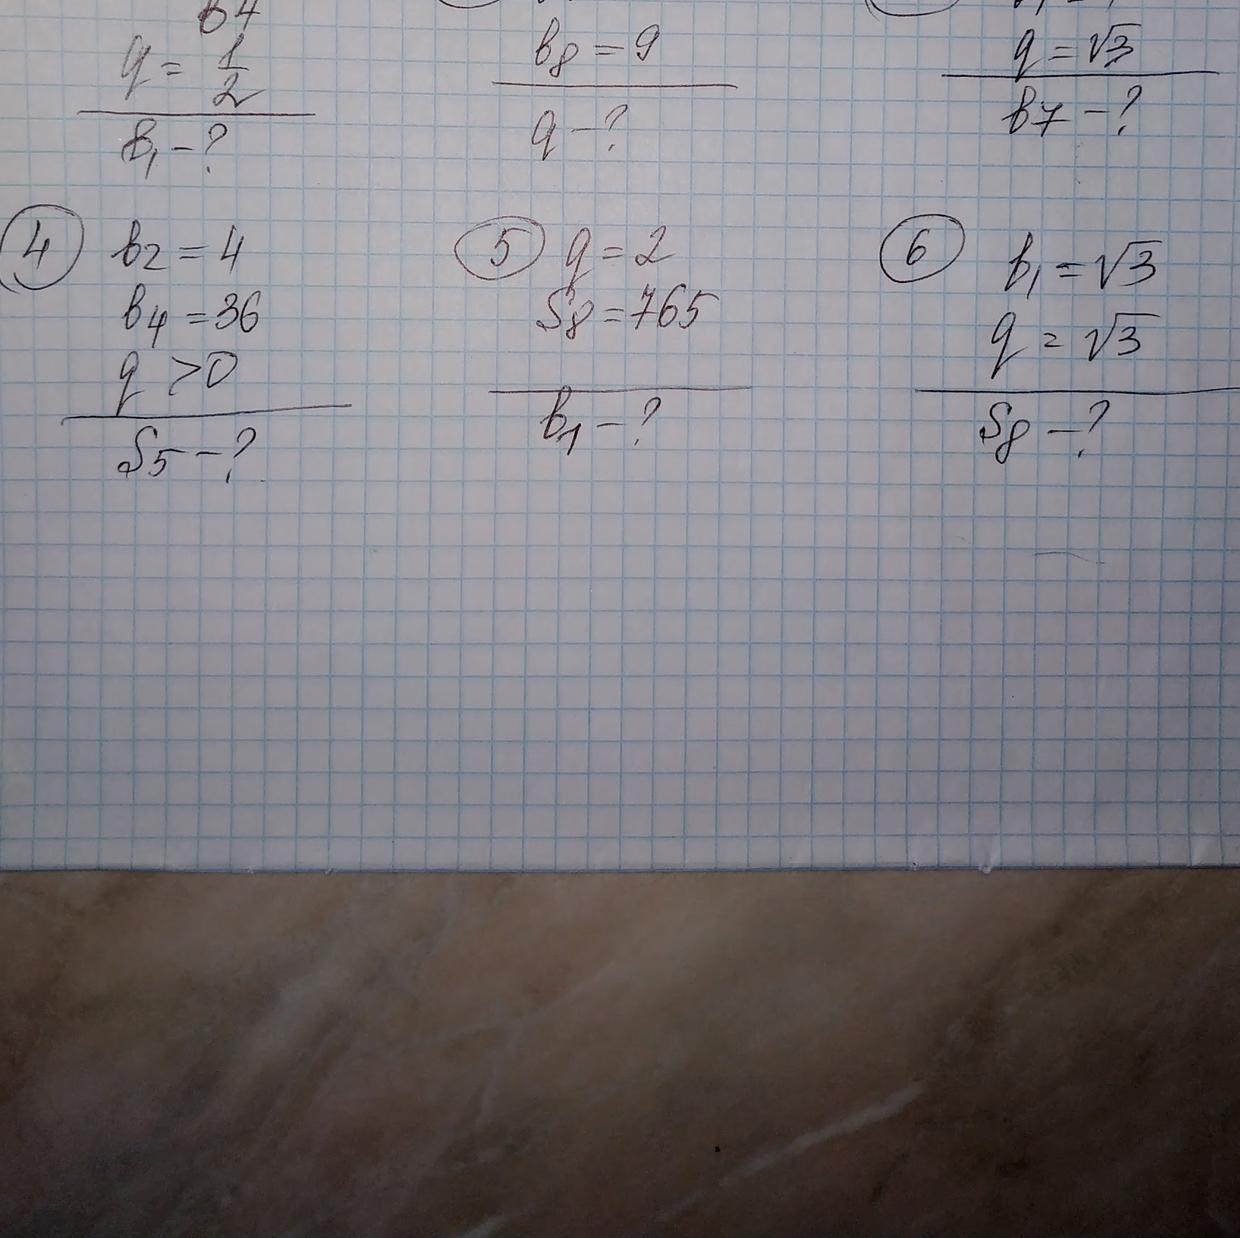 64
q = 1/2
b₁ - ?
b₈ = 9
q - ?
q = √3
b7 - ?
4
b₂ = 4
b₄ = 36
q > 0
S₅ - ?
5
q = 2
S₈ = 765
b₁ - ?
6
b₁ = √3
q = √3
S₈ - ?